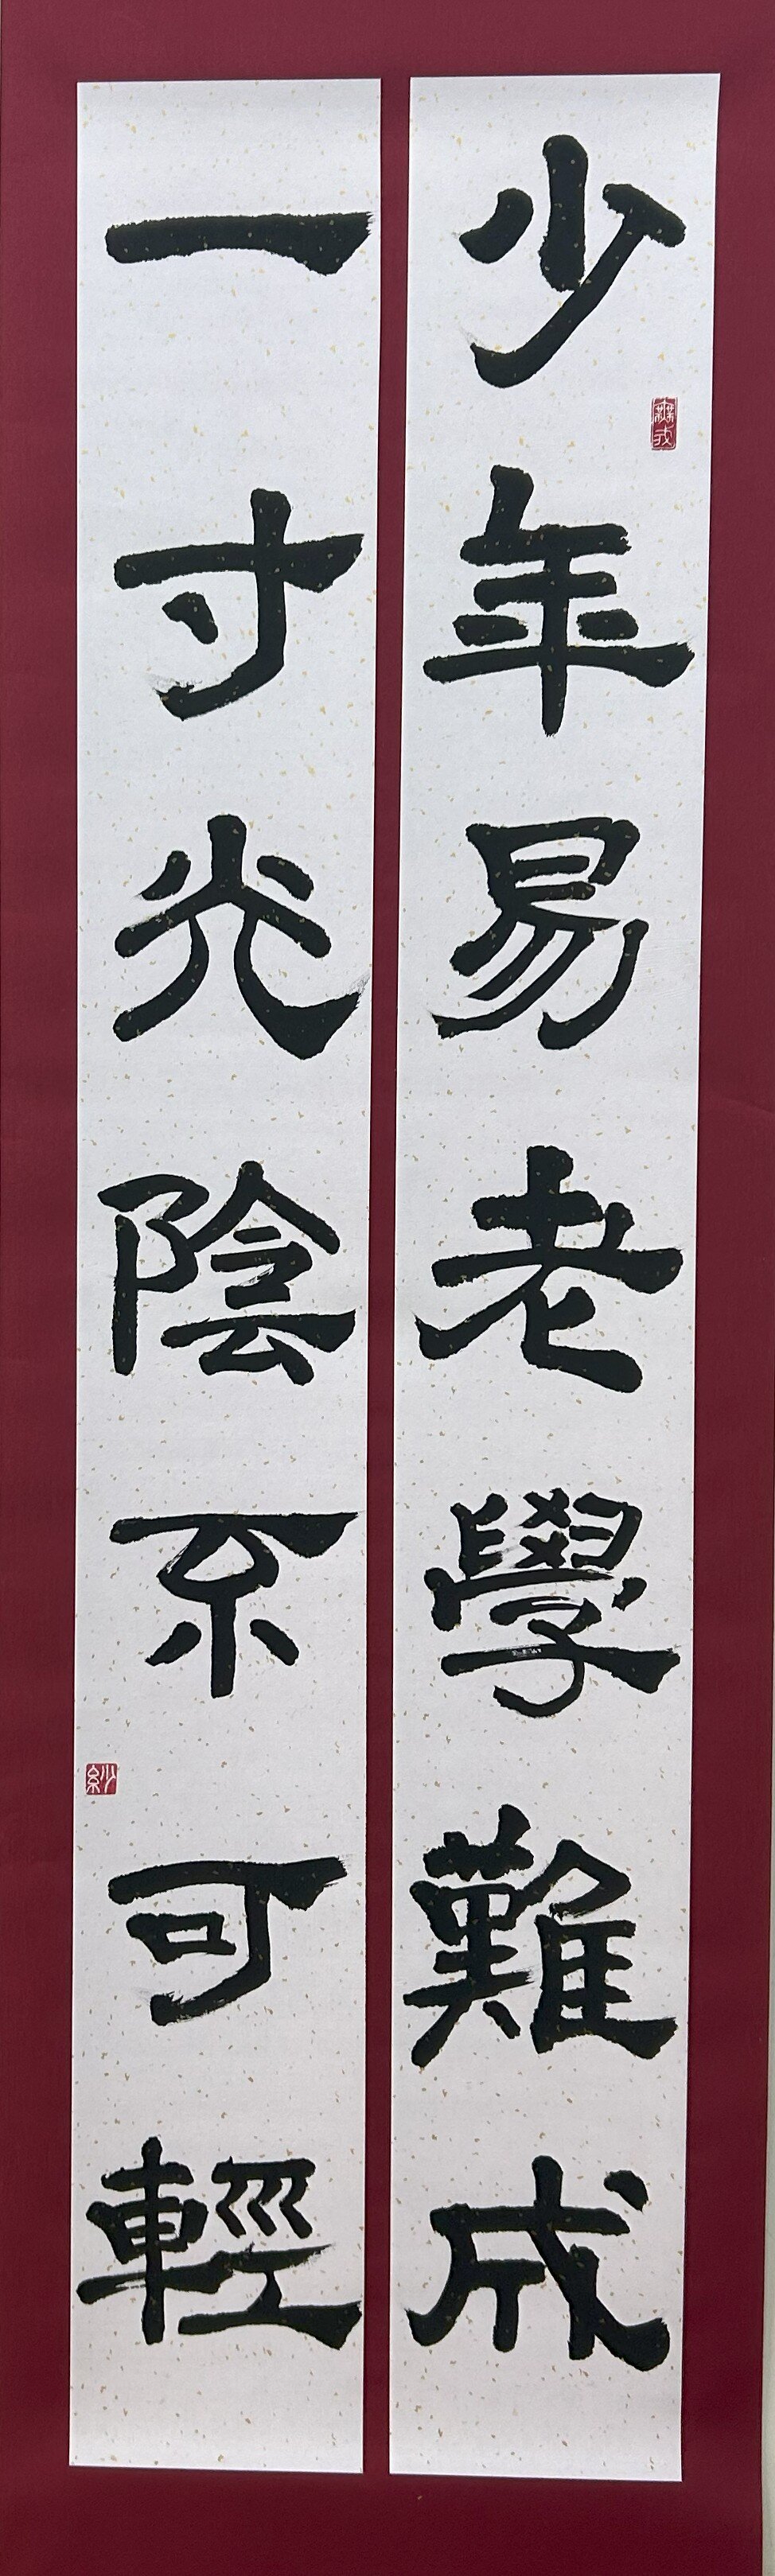 少年易老學難成
一寸光陰不可輕